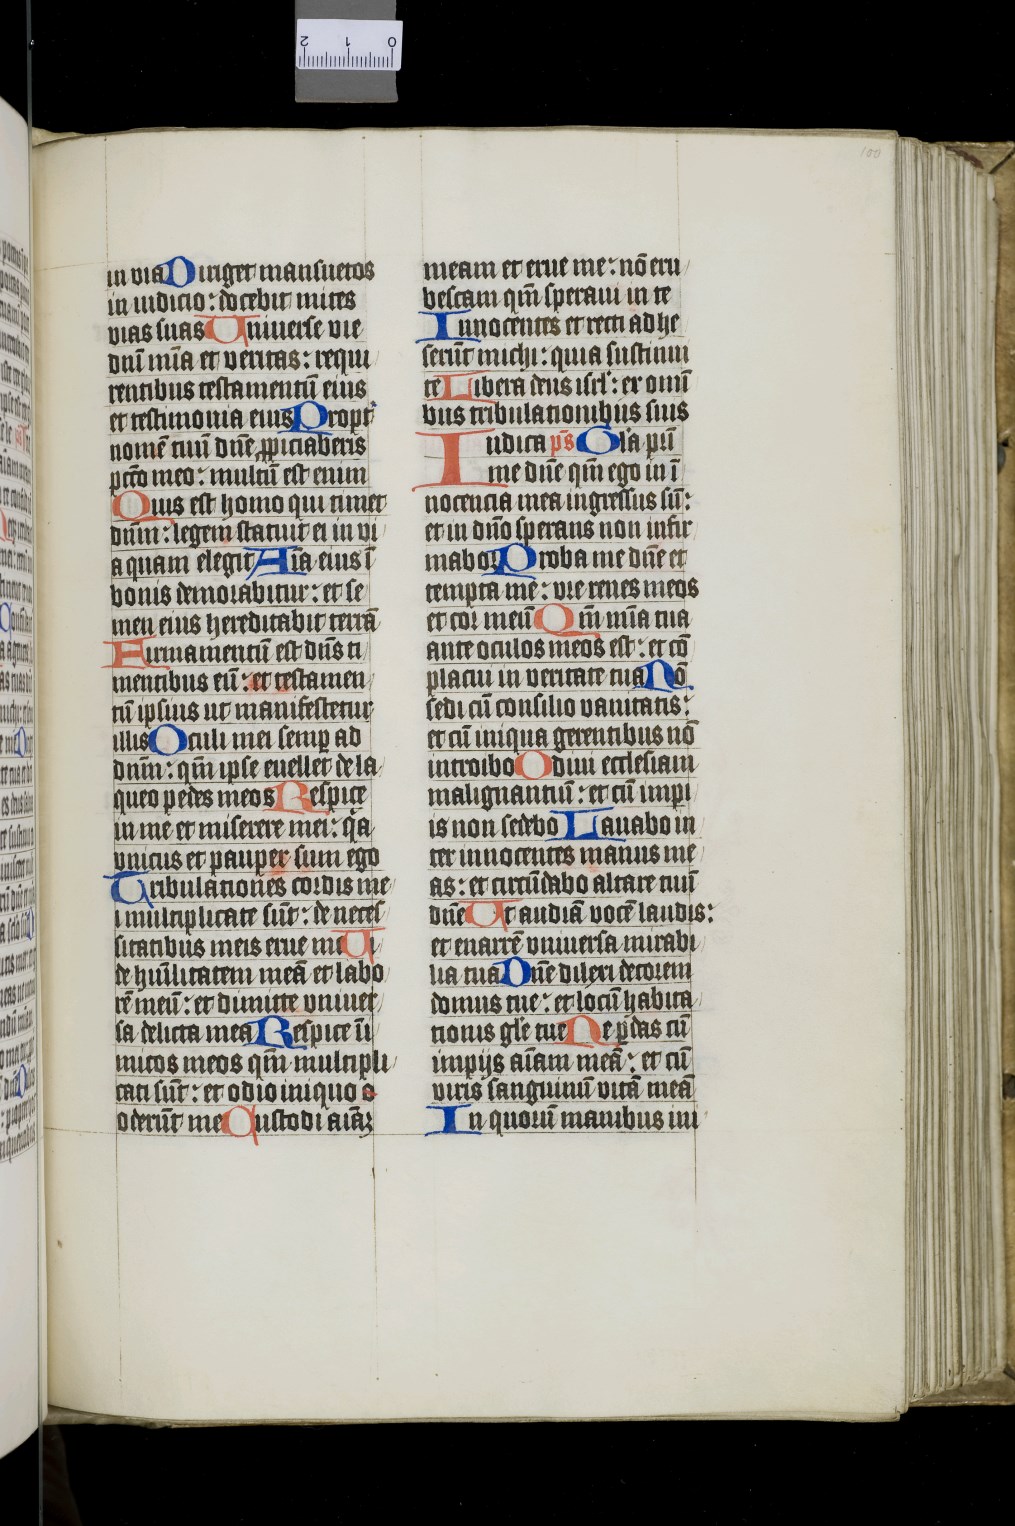 100
in via Diriget mansuetos
in iudicio : docebit mites
vias suas Vniuerse vie
dnī mīa et veritas : requi
rentibus testamentū eius
et testimonia eius Propt
nomē tuū dnē ꝓpiciaberis
pctō meo : multū est enim
Quis est homo qui timet
dnm̄ : legem statuit ei in vi
a quam elegit Aīa eius ī
bonis demorabitur : et se
men eius hereditabit terrā
Firmamentū est dnīs ti
mentibus eū : et testamen
tū ipsius ut manifestetur
illis Oculi mei semꝑ ad
dnm̄ : qm̄ ipse euellet de la
queo pedes meos Respice
in me et miserere mei : qa
vnicus et pauper sum ego
Tribulationes cordis me
i multiplicate sūt : de neces
sitatibus meis erue me Vi
de humilitatem meā et labo
rē meū : et dimitte vniuer
sa delicta mea Respice ini
micos meos qm̄ multipli
cati sūt : et odio iniquo
oderūt me Custodi aiāꝫ
meam et erue me : nō eru
bescam qm̄ speraui in te
Innocentes et recti adhe
serūt michi : quia sustinui
te Libera deus isrl : ex omī
bus tribulationibus suis
Iudica ps Gla pri
me dnē qm̄ ego in ī
nocencia mea ingressus sū :
et in dnō sperans non infir
mabor Proba me dnē et
tempta me : vre renes meos
et cor meū Qm̄ mīa tua
ante oculos meos est : et cō
placui in veritate tua Nō
sedi cū consilio vanitatis :
et cū iniqua gerentibus nō
introibo Odiui ecclesiam
malignantiū : et cū impi
is non sedebo Lauabo in
ter innocentes manus me
as : et circūdabo altare tuū
dnē Vt audiā vocē laudis :
et enarrē vniuersa mirabi
lia tua Dnē dilexi decorem
domus tue : et locū habita
tionis glē tue Ne ꝑdas cū
impijs aīam meā : et cū
viris sanguinū vitā meā
In quorū manibus ini
0 1 2